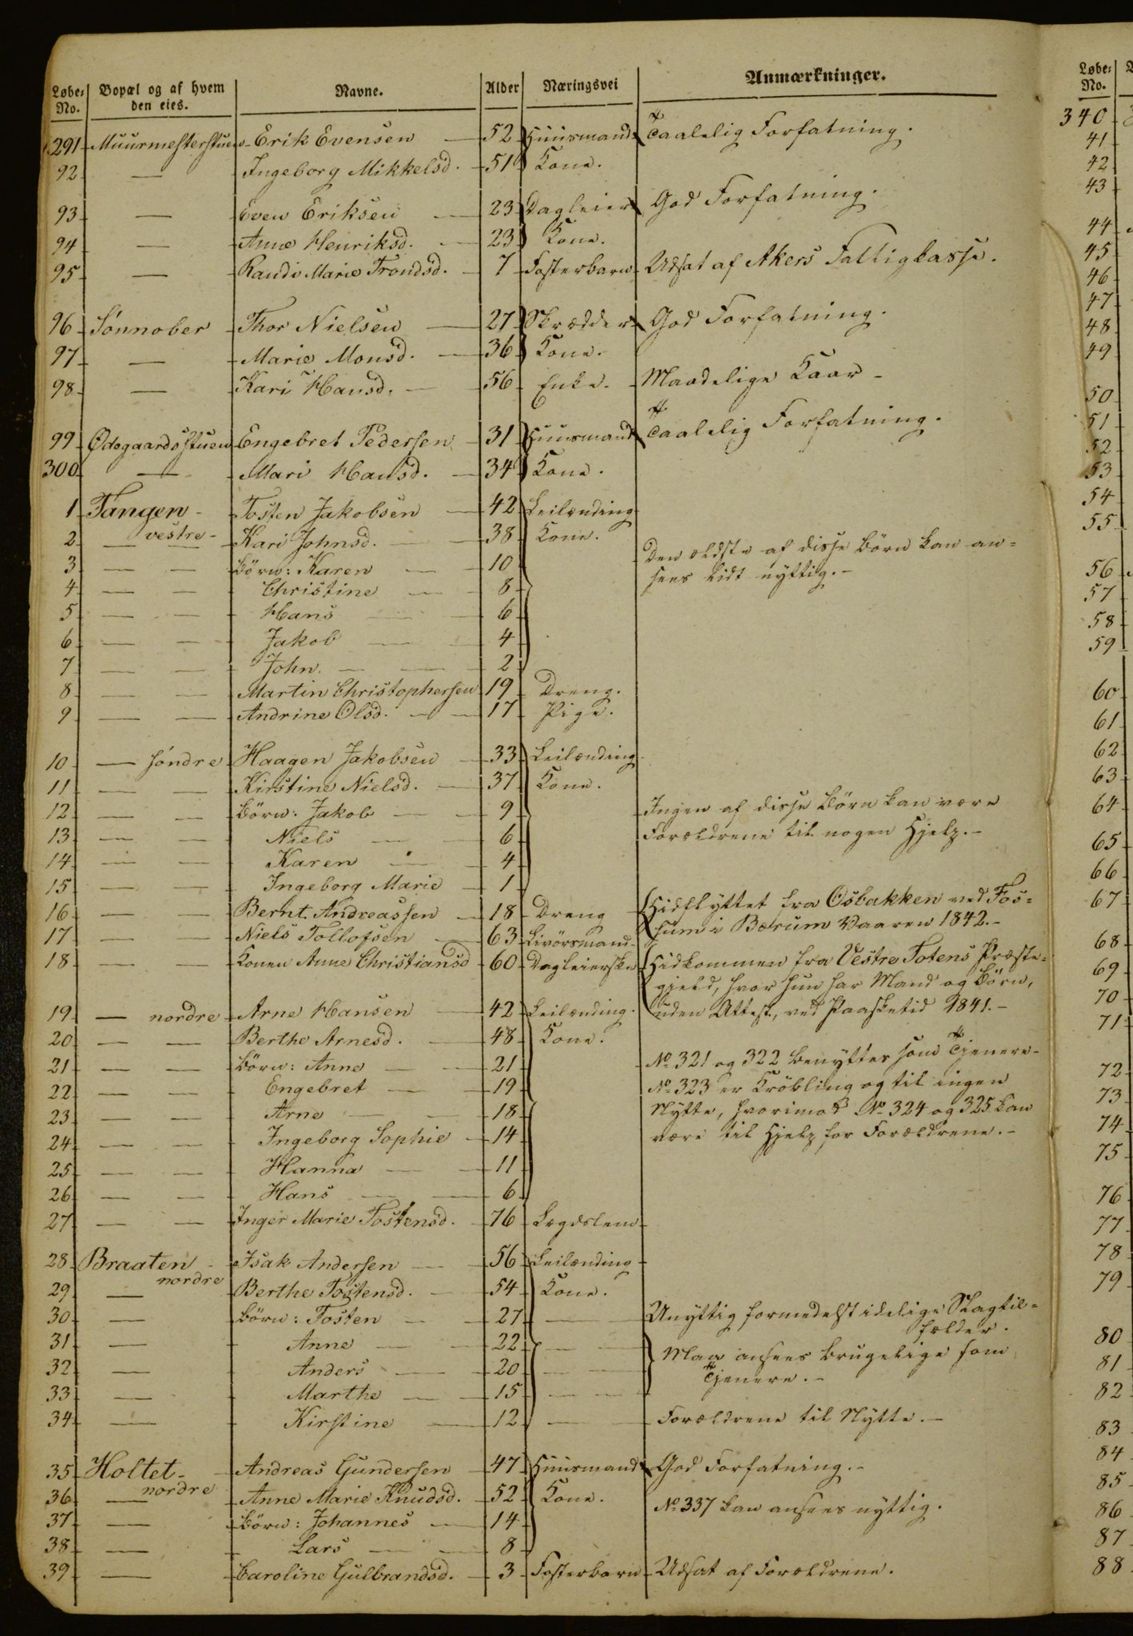 Løbe- No. Bopæl og af hvem den eies. Navne. Alder Næringsvei Anmærkninger.
291 Muurmesterstuen Erik Evensen 52 Huusmand Taalelig Forfatning.
92 — Ingeborg Mikkelsd. 51 Kone.
93 — Even Eriksen 23 Dagleier God Forfatning.
94 — Anne Henriksd. 23 Kone.
95 — Randi Marie Trondsd. 7 Fosterbarn Udsat af Akers Fattigkasse.
96 Sønnober Thor Nielsen 27 Skrædder God Forfatning.
97 — Marie Monsd. 36 Kone.
98 — Kari Hansd. 56 Enke. Maadelige Kaar
99 Ødegaardsstuen Engebret Pedersen 31 Huusmand Taalelig Forfatning.
300 — Mari Hansd. 34 Kone.
1 Tangen Tosten Jakobsen 42 Leilænding
2 — vestre Kari Johnsd. 38 Kone.
3 — — Börn: Karen 10 Den ældste af disse Børn kan an-
4 — — Christine 8 sees lidt nyttig.-
5 — — Hans 6
6 — — Jakob 4
7 — — John. 2
8 — — Martin Christophersen 19 Dreng.
9 — — Andrine Olsd. 17 Pige.
10 — söndre Haagen Jakobsen 33 Leilænding
11 — — Kirstine Nielsd. 37 Kone.
12 — — Börn: Jakob 9 Ingen af disse Börn kan være
13 — — Niels 6 Forældrene til nogen Hjelp.-
14 — — Karen 4
15 — — Ingeborg Marie 1
16 — — Bernt Andreassen 18 Dreng Hidflyttet fra Osbakken ved Fos-
17 — — Niels Tollofsen 63 Livörsmand sum i Bærum Vaaren 1842.-
18 — — Konen Anne Christiansd 60 Dagleierske Hidkommen fra Vestre Totens Præste-
gjeld, hvor hun har Mand og Börn,
19 — nordre Arne Hansen 42 Leilænding. uden Attest, ved Paasketid 1841.-
20 — — Berthe Arnesd. 48 Kone.
21 — — Börn: Anne 21 No 321 og 322 benyttes som Tjenere-
22 — — Engebret 19 No 323 er Kröbling og til ingen
23 — — Arne 18 Nytte, hvorimod No 324 og 325 kan
24 — — Ingeborg Sophie 14 være til Hjelp for Forældrene.-
25 — — Hanna 11
26 — — Hans 6
27 — — Inger Marie Tostensd. 76 Lægdslem
28 Braaten Isak Andersen 56 Leilænding
29 — nordre Berthe Tostensd. 54 Kone.
30 — Börn: Tosten 27 — Unyttig formedelst idelige Slagtil-
fælder.
31 — Anne 22 — Maa ansees brugelige som
32 — Anders 20 — Tjenere.-
33 — Marthe 15 —
34 — Kirstine 12 — Forældrene til Nytte.-
35 Holtet Andreas Gundersen 47 Huusmand God Forfatning.-
36 — nordre Anne Marie Knudsd. 52 Kone. No 337 kan ansees nyttig.
37 — Börn: Johannes 14
38 — Lars 8
39 — Caroline Gulbrandsd. 3 Fosterbarn Udsat af Forældrene.
Løbe- No.
340
41
42
43
44
45
46
47
48
49
50
51
52
53
54
55
56
57
58
59
60
61
62
63
64
65
66
67
68
69
70
71
72
73
74
75
76
77
78
79
80
81
82
83
84
85
86
87
88